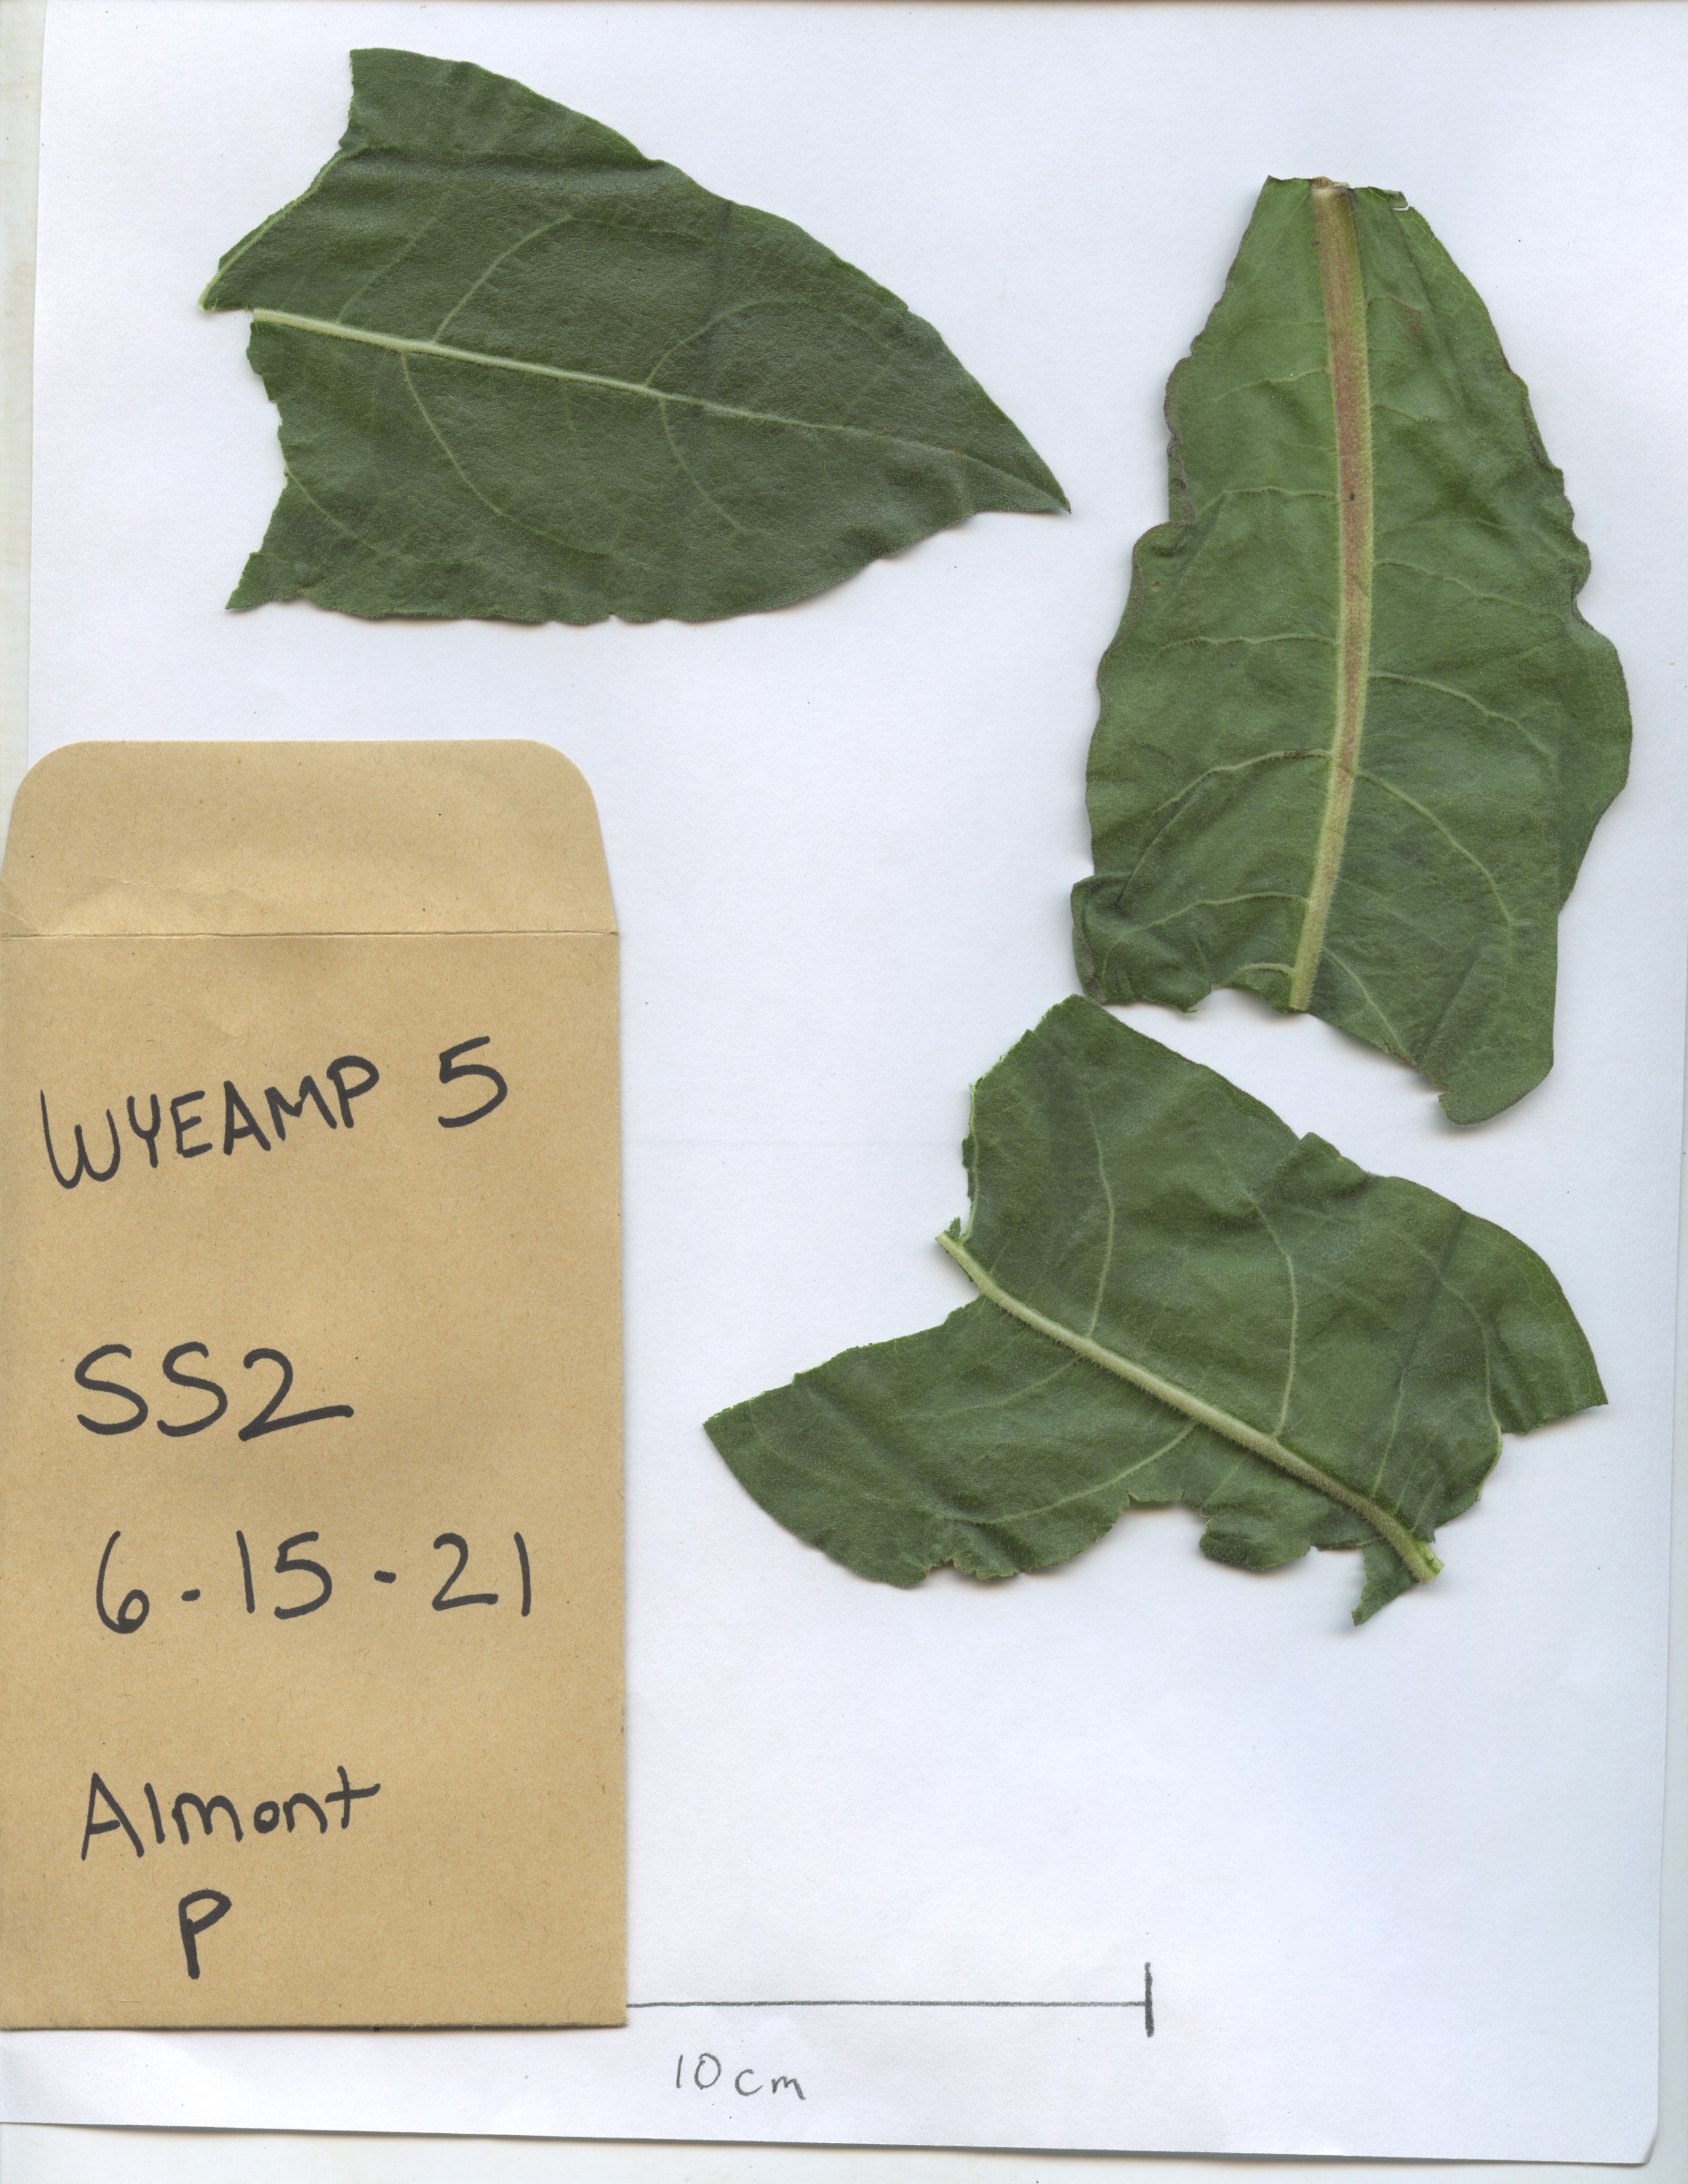 WYEAMP 5
SS2
6-15-21
Almont
P
10cm